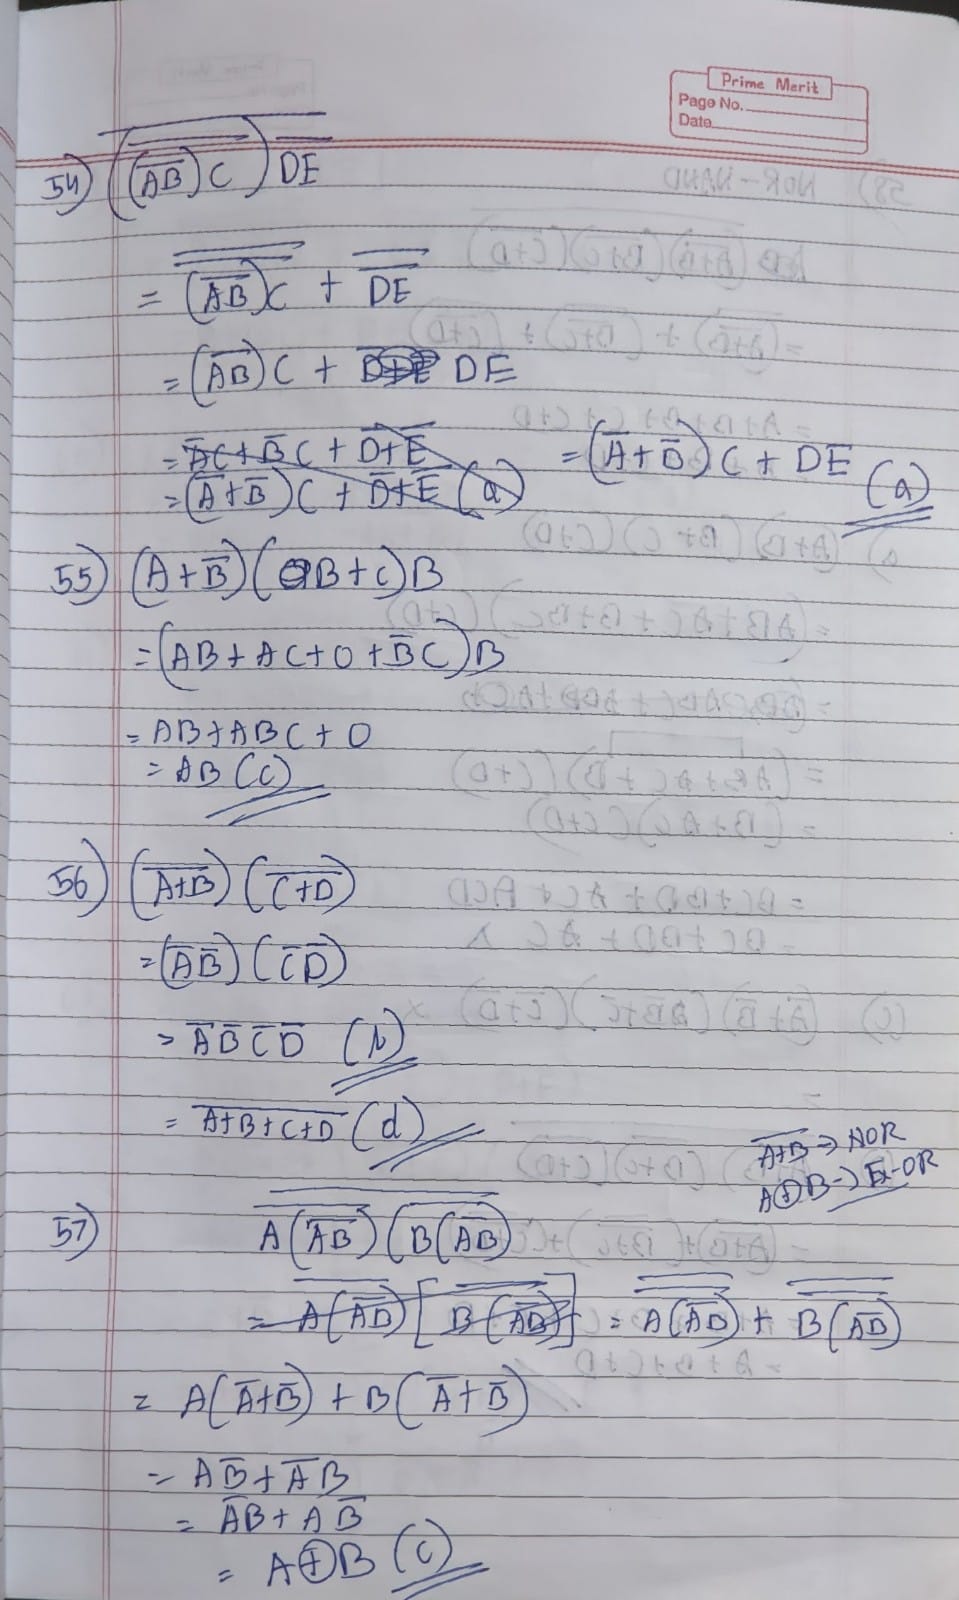 Prime Merit
Page No.
Date
54) $\overline{\overline{((\overline{AB})C)}\ \overline{DE}}$
= $\overline{\overline{(\overline{AB})C}} + \overline{\overline{DE}}$
= $(\overline{AB})C +$ DE
= $\bar{A}C + \bar{B}C + \bar{D}+\bar{E}$ = $(\bar{A}+\bar{B})C + DE$ (a)
= $(\bar{A}+\bar{B})C + \bar{D}+\bar{E}$ (a)
55) $(A+\bar{B})(B+C)B$
= $(AB+AC+0+\bar{B}C)B$
= AB+ABC+0
= AB (c)
56) $(\overline{A+B})(\overline{C+D})$
= $(\bar{A}\bar{B})(\bar{C}\bar{D})$
= $\bar{A}\bar{B}\bar{C}\bar{D}$ (b)
= $\overline{A+B+C+D}$ (d)
$\overline{A+B}$ → NOR
A⊕B → Ex-OR
57) $\overline{\overline{A(\overline{AB})}\ \overline{(B(\overline{AB})}}$
= $\overline{A(\overline{AB})}[\overline{B(\overline{AB})}]$ = $\overline{\overline{A(\overline{AB})}} + \overline{\overline{B(\overline{AB})}}$
= $A(\bar{A}+\bar{B}) + B(\bar{A}+\bar{B})$
= $A\bar{B}+\bar{A}B$
= $\bar{A}B+A\bar{B}$
= A⊕B (c)